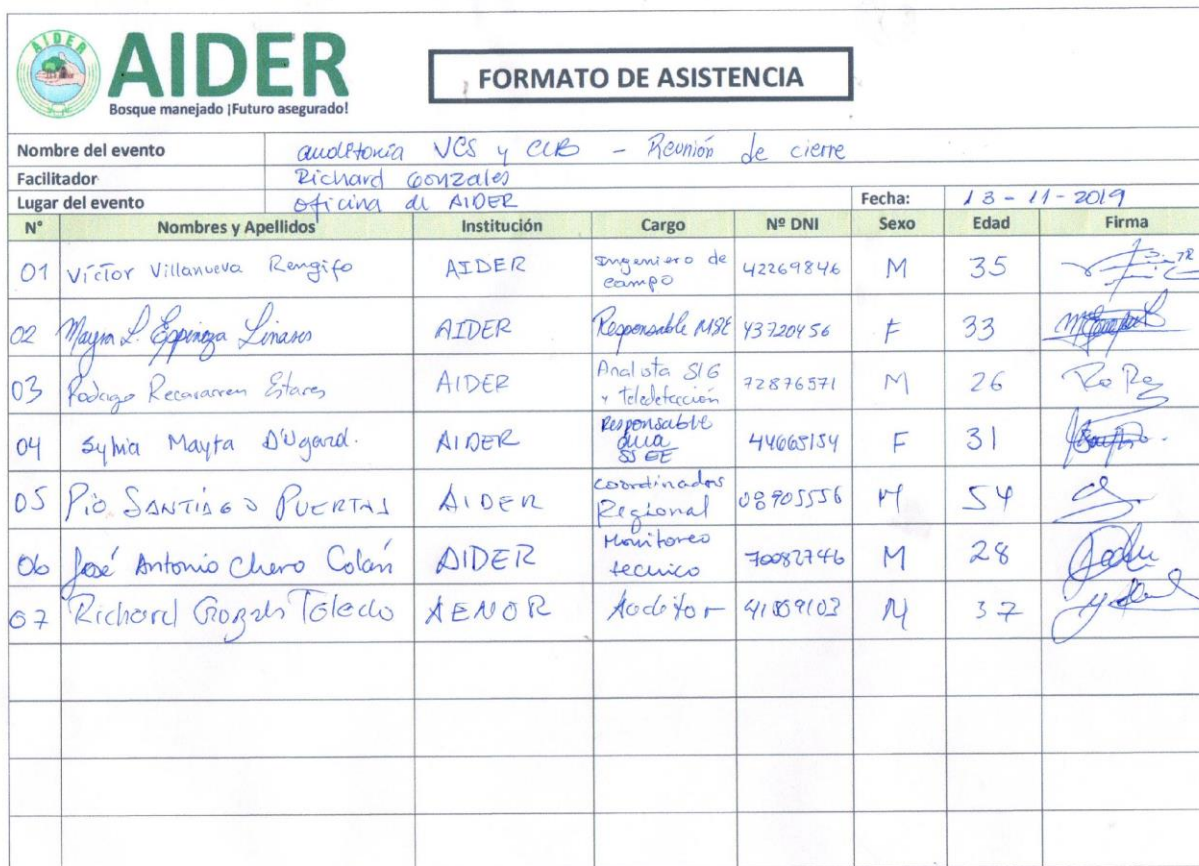 AIDER
AIDER
Bosque manejado ¡Futuro asegurado!
FORMATO DE ASISTENCIA
Nombre del evento auditoria VCS y CCB - Reunión de cierre
Facilitador Richard Gonzales
Lugar del evento oficina de AIDER Fecha: 13 - 11 - 2019
N° Nombres y Apellidos Institución Cargo Nº DNI Sexo Edad Firma
01 Víctor Villanueva Rengifo AIDER Ingeniero de campo 42269846 M 35
02 Mayra L. Espinoza Linares AIDER Responsable M&E 43720456 F 33
03 Rodrigo Recavarren Estares AIDER Analista SIG y teledetección 72876571 M 26
04 Sylvia Mayta D'Ugard. AIDER Responsable SSEE 44665154 F 31
05 Pío SANTIAGO PUERTAS AIDER coordinador Regional 08905556 M 54
06 José Antonio Chero Colán AIDER Monitoreo tecnico 70082746 M 28
07 Richard Toledo AENOR Auditor M 37